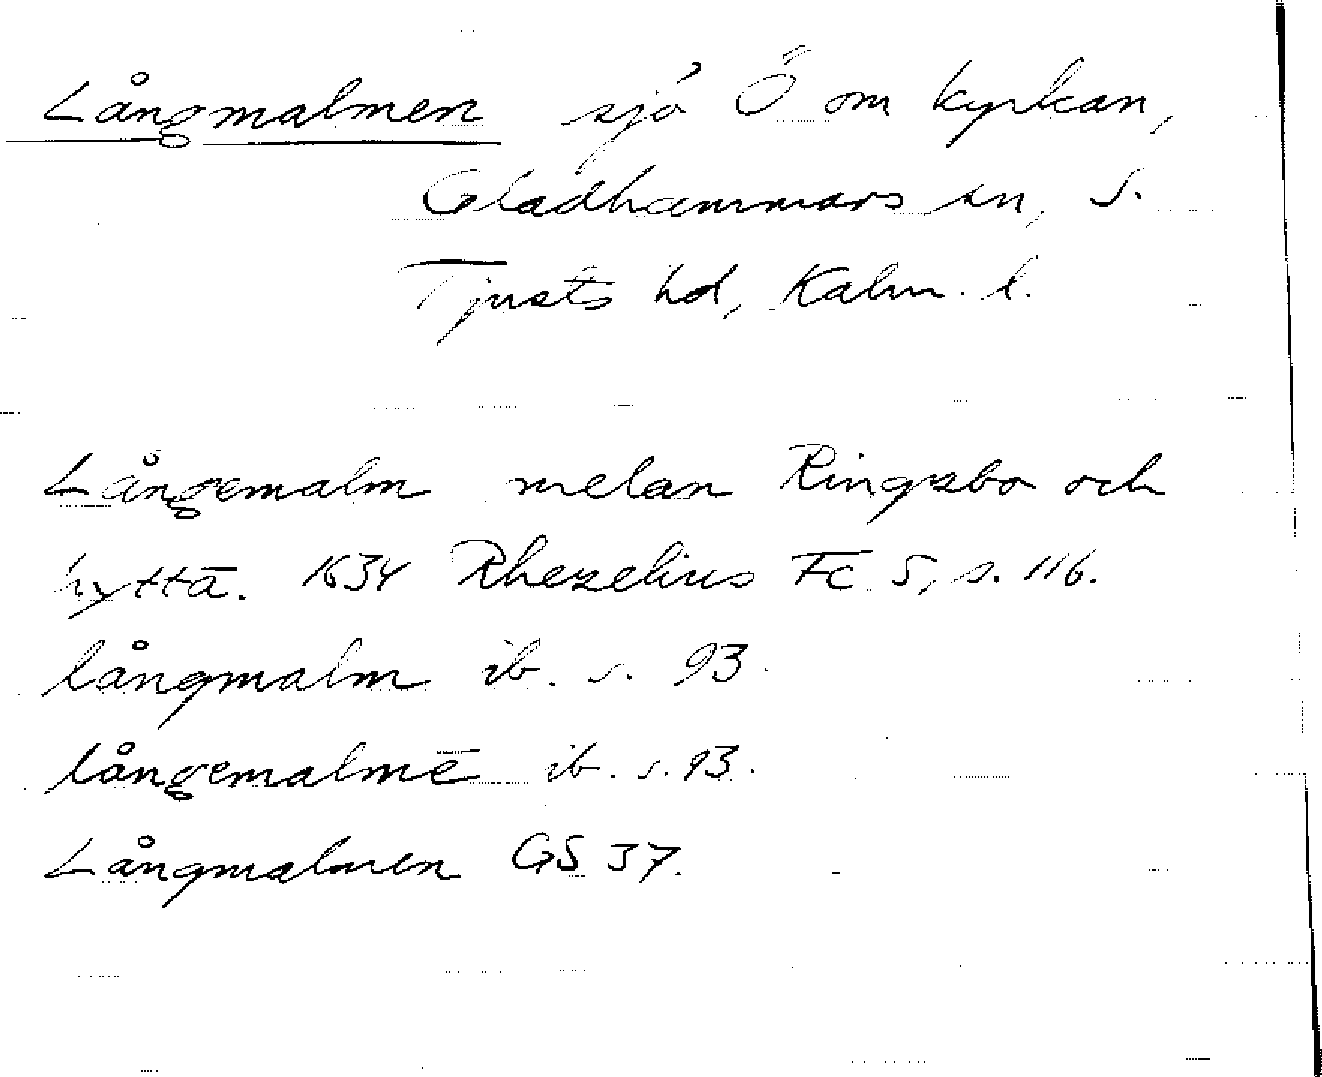 Långmalmen sjö Ö om kyrkan,
Gladhammars sn, S.
Tjusts hd, Kalm. l.
Långemalm melan Ringsbo och
hyttā. 1634 Rhezelius Fc 5, s. 116.
långmalm ib. s. 93.
långemalmē ib. s. 93.
Långmalmen GS 37.